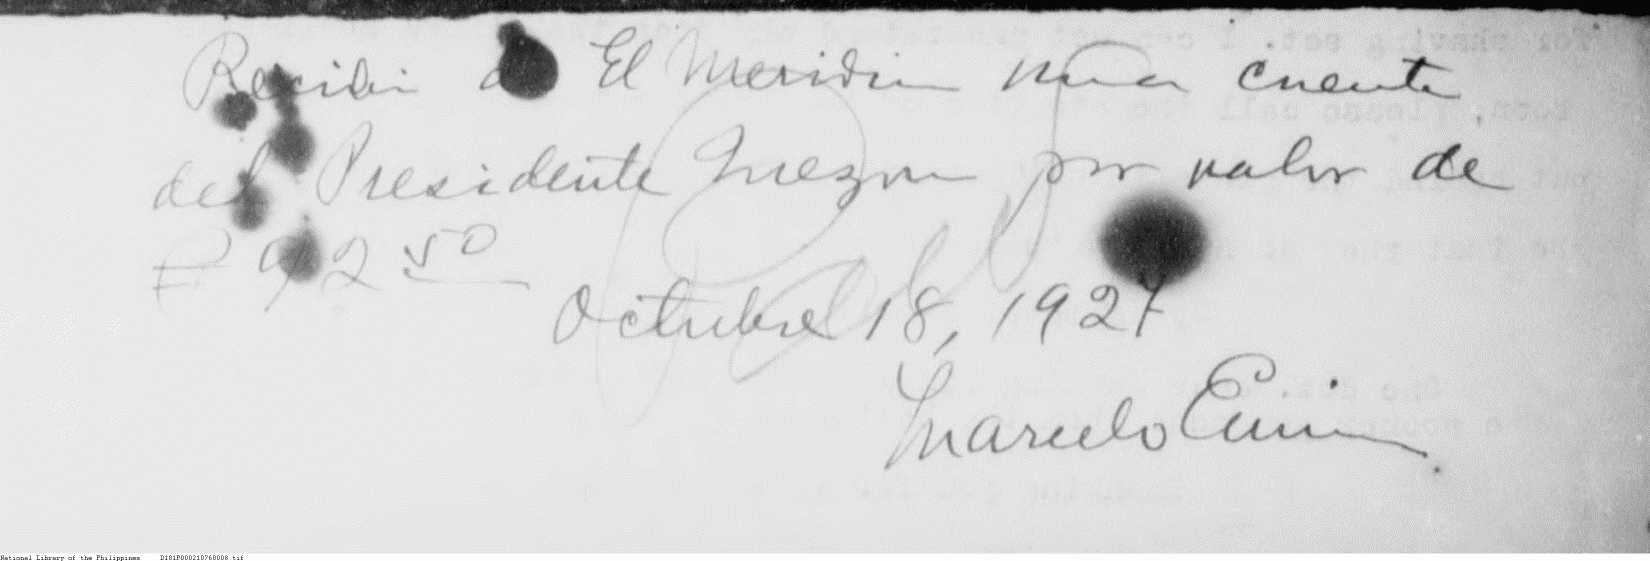 Recibi de El Meridian una cuenta
del Presidente Quezon por valor de
₱ 92 50
Octubre 18, 1927
Marcelo
National Library of the Philippines D181P000210760008.tif